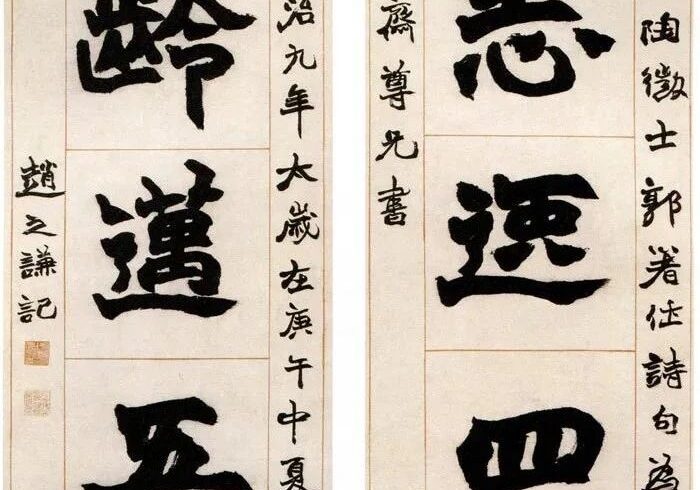 陶徵士郭著作詩句為
志逸四
齋尊兄書
治九年太歲在庚午中夏
齡邁五
趙之謙記